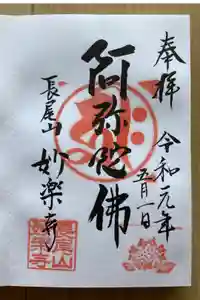 奉拝
令和元年
五月一日
阿弥陀佛
長尾山
妙楽寺
長尾山
妙楽寺